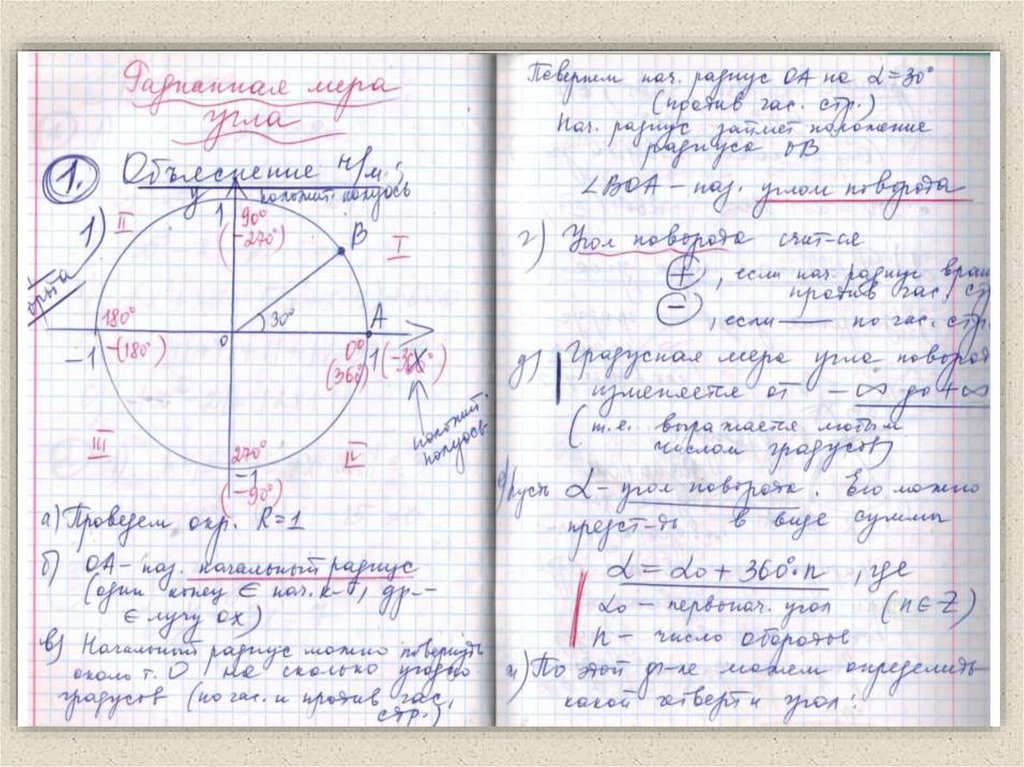 Радианная мера
угла
1. Объяснение
положит. полуось
1)
y
II
1
90°
(-270°)
B
I
180°
30°
A
-1
-(180°)
0
0°
1
(360°)
X
положит.
полуось
III
270°
IV
-1
(-90°)
а) Проведем окр. R=1
б) OA – наз. начальный радиус
(один конец ∈ нач. к-т, др. –
∈ лучу ox)
в) Начальный радиус можно повернуть
около т. O на сколько угодно
градусов (по час. и против час.
стр.)
Повернем нач. радиус OA на α=30°
(против час. стр.)
Нач. радиус займет положение
радиуса OB
∠BOA – наз. углом поворота
г) Угол поворота счит-ся
+ , если нач. радиус вращ
против час. стр
– , если —— по час. стр.
д) Градусная мера угла поворот
изменяется от -∞ до +∞
(т.е. выражается любым
числом градусов)
Пусть α – угол поворота. Его можно
предст-ть в виде суммы
α = α₀ + 360°·n , где
α₀ – первонач. угол (n∈Z)
n – число оборотов
По этой ф-ле можем определить
какой четверти угол: